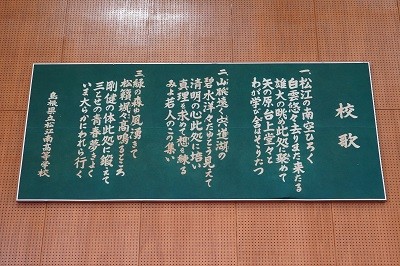 校歌
一、松江の南空ひろく
白雲悠々去りまた来たる
雄大の眺め此処に聚めて
矢の原台上堂々と
わが学舎はそゝりたつ
二、山脈遠く宍道湖の
碧水洋々たゆとう見えて
清明の心此処に培い
真理を求めて想を練る
みよ若人のこの集い
三、緑の森由風湧きて
松籟颯々高鳴るところ
剛健の体此処に鍛えて
三とせの青春夢きよく
いま大らかにわれら行く
島根県立松江南高等学校